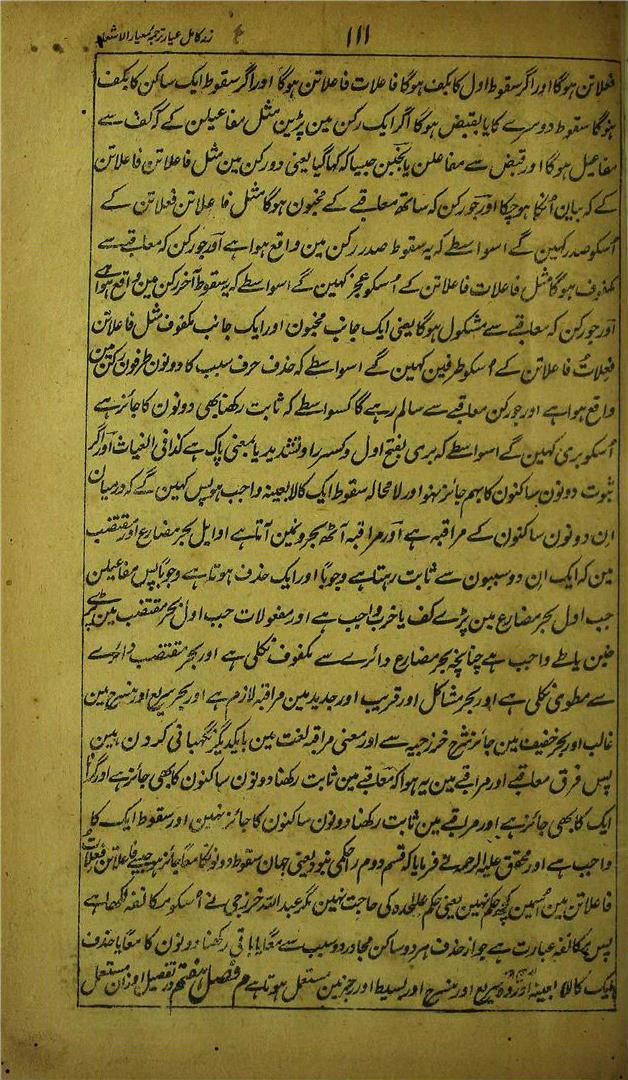 زر کامل عیار ترجمہ معیار الاشعار
۱۱۱
فعلاتن ہوگا اور اگر سقوط اول کا بکف ہوگا فاعلات فاعلاتن ہوگا اور اگر سقوط ایک ساکن کا بکف
ہوگا سقوط دوسرے کا یا بقبض ہوگا اگر ایک رکن مین پڑین مثل مفاعیلن کے کہ کف سے
مفاعیل ہوگا اور قبض سے مفاعلن یا بخبن جیسا کہ کہا گیا یعنی دو رکن مین مثل فاعلاتن فاعلاتن
کے کہ بیان اُنکا ہوچکا اور جو رکن کہ ساتھ معاقبے کے مخبون ہوگا مثل فاعلاتن فعلاتن کے
اُسکو صدر کہین گے اسواسطے کہ یہ سقوط صدر رکن مین واقع ہوا ہے اور جو رکن کہ معاقبے سے
مکفوف ہوگا مثل فاعلات فاعلاتن کے اُسکو عجز کہین گے اسواسطے کہ یہ سقوط آخر رکن مین واقع ہوا ہے
اور جو رکن کہ معاقبے سے مشکول ہوگا یعنی ایک جانب مخبون اور ایک جانب مکفوف مثل فاعلاتن
فعلاتُ فاعلاتن کے اُسکو طرفین کہین گے اسواسطے کہ حذف حرف سبب کا دونون طرفون رکن مین
واقع ہوا ہے اور جو رکن معاقبے سے سالم رہے گا کسواسطے کہ ثابت رکھنا بھی دونون کا جائز ہے
اُسکو بری کہین گے اسواسطے کہ بری بفتح اول و کسر را و تشدید یا بمعنی پاک ہے کذا فی الغیاث اور اگر
ثبوت دونون ساکنون کا بہم جائز نہو اور لا محالہ سقوط ایک کا لا بعینہ واجب ہو پس کہین گے کہ درمیان
ان دونون ساکنون کے مراقبہ ہے اور مراقبہ آٹھ بحرونمین آتا ہے اوایل بحر مضارع اور مقتضب
مین کہ ایک ان دو سببون سے ثابت رہتا ہے وجوبًا اور ایک حذف ہوتا ہے وجوبًا پس مفاعیلن
جب اول بحر مضارع مین پڑے کف یا خرب واجب ہے اور مفعولات جب اول بحر مقتضب مین پڑے
خبن یا طے واجب ہے چنانچہ بحر مضارع دائرے سے مکفوف نکلی ہے اور بحر مقتضب دائرے
سے مطوی نکلی ہے اور بحر مشاکل اور قریب اور جدید مین مراقبہ لازم ہے اور بحر سریع اور منسرح مین
غالب اور بحر خفیف مین جائز شرح خزرجیہ سے اور معنی مراقبہ لغت مین بایکدیگر نگہبانی کردن ہین
پس فرق معاقبے اور مراقبے مین یہ ہوا کہ معاقبے مین ثابت رکھنا دونون ساکنون کا بھی جائز ہے اور گرانا
ایک کا بھی جائز ہے اور مراقبے مین ثابت رکھنا دونون ساکنون کا جائز نہین اور سقوط ایک کا
واجب ہے اور محقق علیہ الرحمہ نے فرمایا کہ قسم دوم را حکمی نبود یعنی جہان سقوط دونونکا معًا جائز ہو جیسے فاعلاتن فعلاتُ
فاعلاتن مین اُسمین کچھ حکم نہین یعنی حکم علٰحدہ کی حاجت نہین مگر عبد اللہ خزرجی نے اُسکو مکانفہ لکھا ہے
پس مکانفہ عبارت ہے جواز حذف ہر دو ساکن مجاور دو سبب سے معًا یا باقی رکھنا دونون کا معًا یا حذف
ایک کا لا بعینہ اور وہ سریع اور منسرح اور بسیط اور رجز مین مستعمل ہوتا ہے م فصل ہفتم در تفصیل اوزان مستعمل